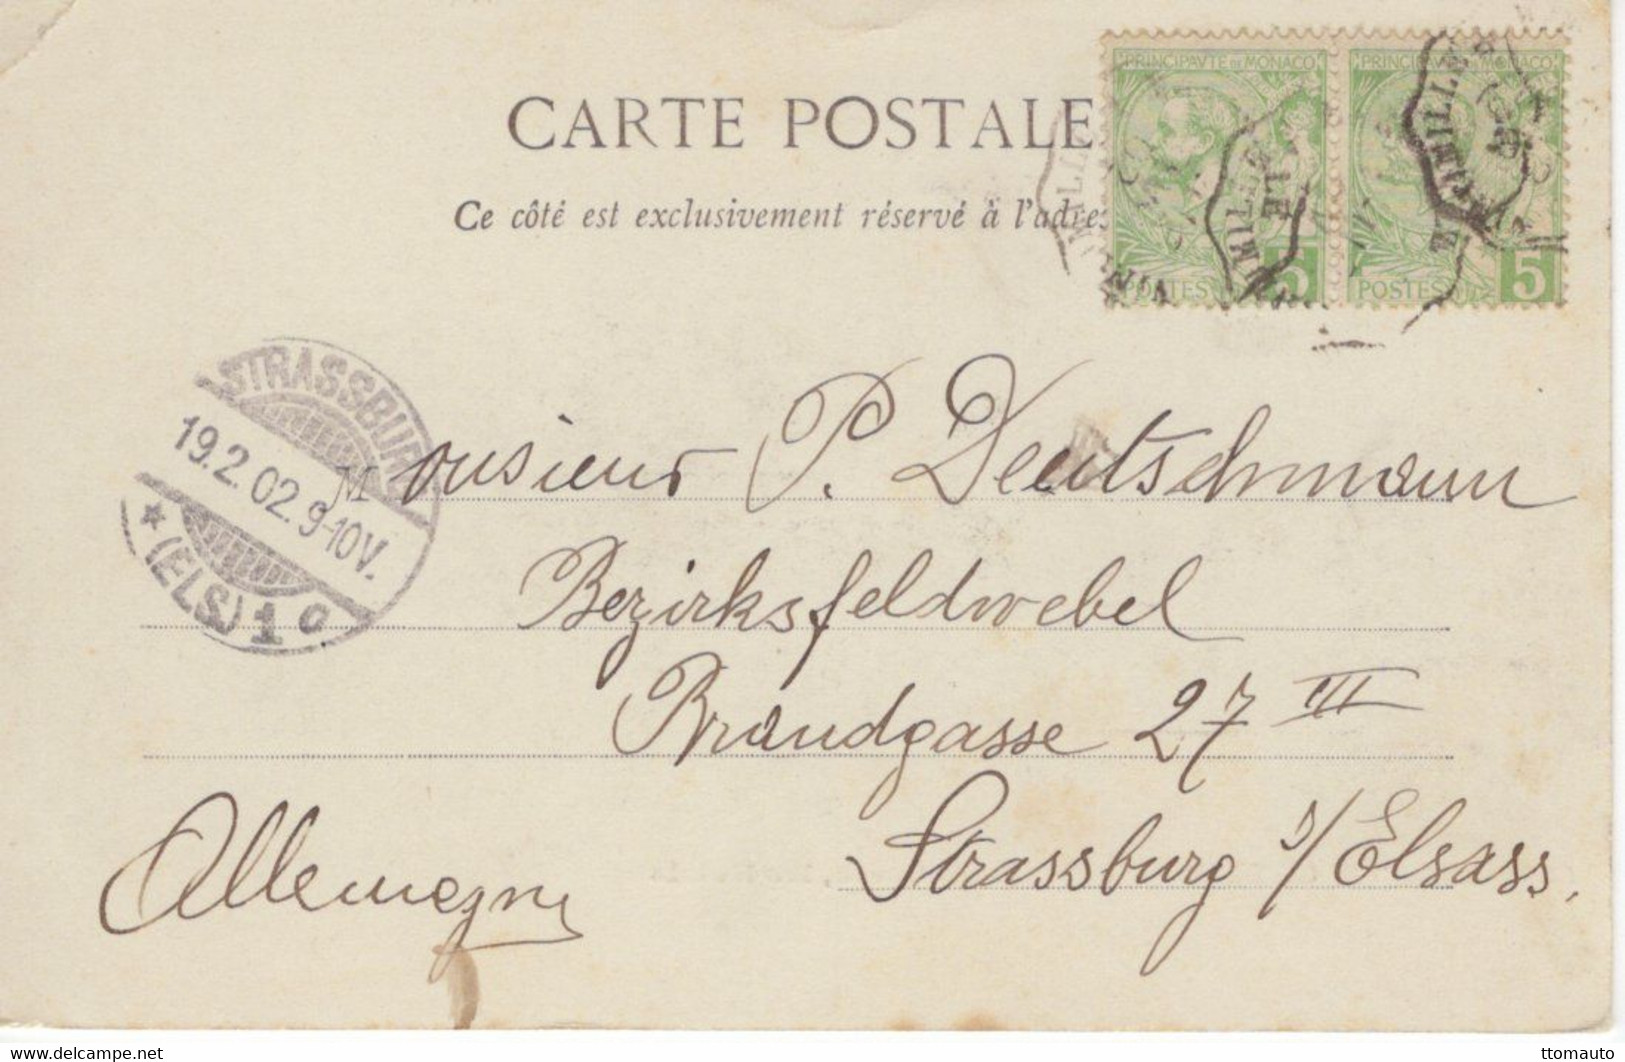 PRINCIPAVTE DE MONACO PRINCIPAVTE DE MONACO
CARTE POSTALE
Ce côté est exclusivement réservé à l'adres
POSTES 5 POSTES 5
STRASSBURG
19.2.02.9-10V.
* (ELS.) 1 a
Monsieur P. Deutschmann
Bezirksfeldwebel
Brandgasse 27 III
Strassburg s/Elsass.
Allemagne
delcampe.net
ttomauto